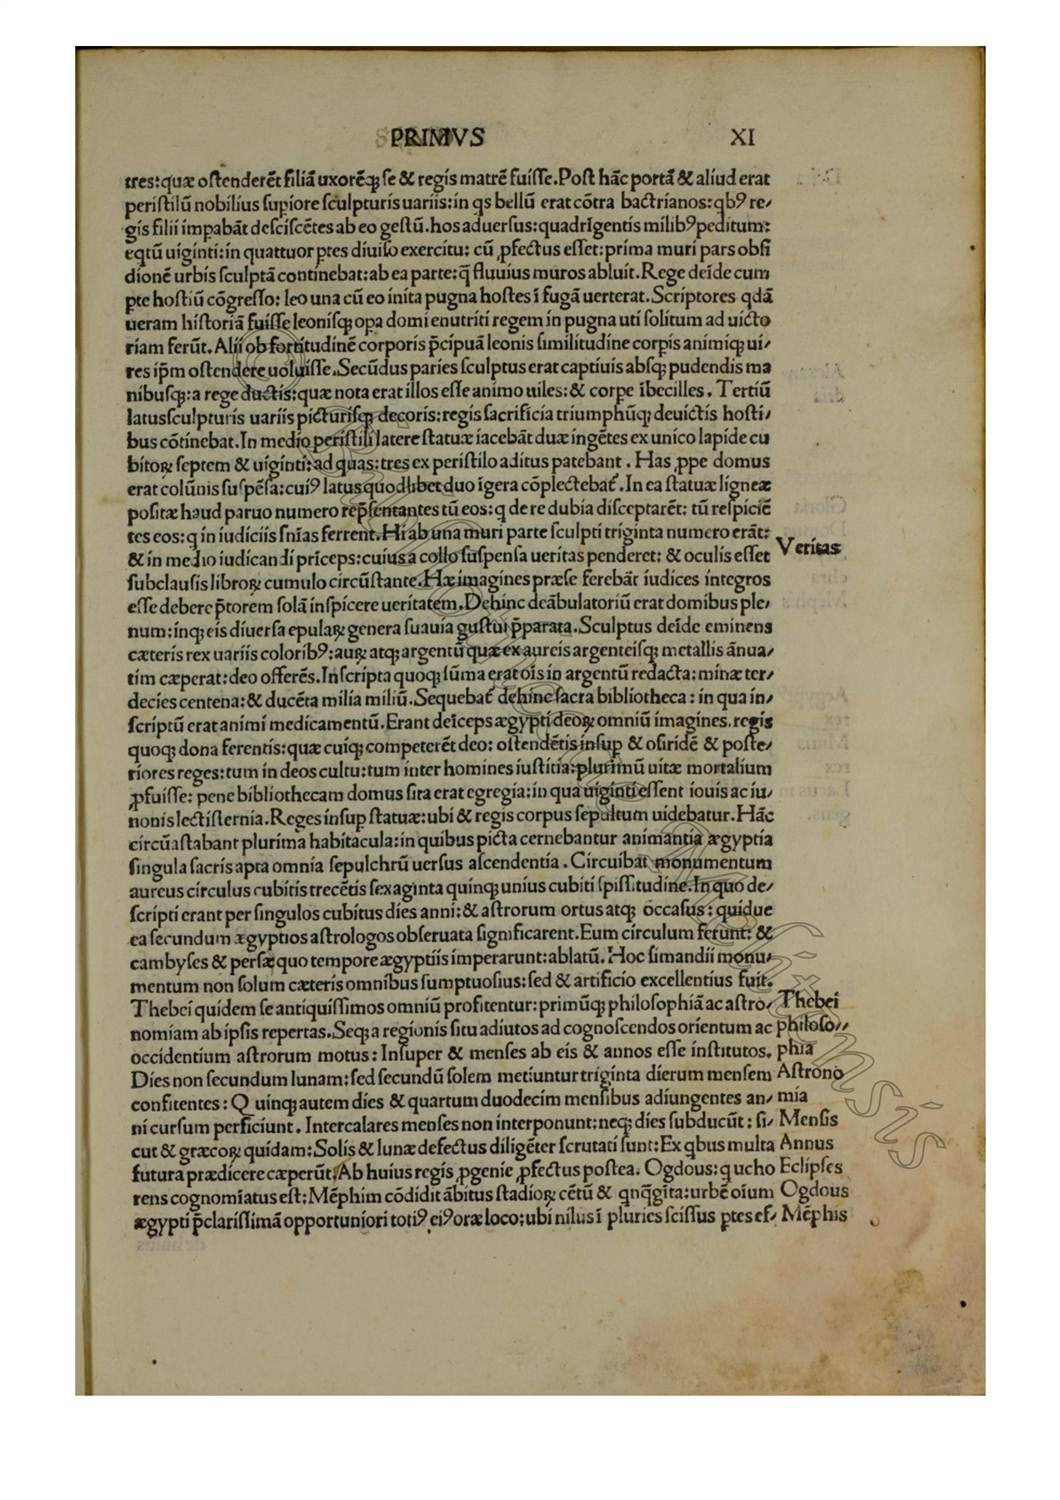 PRIMVS XI
tres:quæ oſtenderēt filiā uxorēq; ſe & regis matrē fuiſſe.Poſt hāc portā & aliud erat
periſtilū nobilius ſupiore ſculpturis uariis:in qs bellū erat cōtra bactrianos:qbꝰ re/
gis filii impabāt deſciſcētes ab eo geſtū.hos aduerſus:quadrīgentis milibꝰpeditum:
eqtū uiginti:in quattuor ptes diuiſo exercitu: cū ꝓfectus eſſet:prima muri pars obſi
dionē urbis ſculptā continebat:ab ea parte:q̄ fluuius muros abluit.Rege deīde cum
pte hoſtiū cōgreſſo: leo una cū eo inita pugna hoſtes ī fugā uerterat.Scriptores qdā
ueram hiſtoriā fuiſſe leoniſq; opa domi enutriti regem in pugna uti ſolitum ad uicto
riam ferūt.Alii ob fortitudinē corporis p̄cipuā leonis ſimilitudine corpis animiq; ui/
res ip̄m oſtendere uoluiſſe.Secūdus paries ſculptus erat captiuis abſq; pudendis ma
nibuſq;:a rege ductis:quæ nota erat illos eſſe animo uiles:& corpe ībecilles. Tertiū
latusſculpturis uariis picturiſq; decoris:regis ſacrificia triumphūq; deuictis hoſti/
bus cōtinebat.In medio periſtili latere ſtatuæ iacebāt duæ ingētes ex unico lapide cu
bitoꝝ ſeptem & uiginti:ad quas:tres ex periſtilo aditus patebant. Has ꝓpe domus
erat colūnis ſuſpēſa:cuiꝰ latus quodlibet duo īgera cōplectebat̄.In ea ſtatuæ ligneæ
poſitæ haud paruo numero rep̄ſentantes tū eos: q de re dubia diſceptarēt: tū reſpiciē
tes eos:q in iudiciis ſnīas ferrent.Hi ab una muri parte ſculpti triginta numero erāt:
& in medio iudicandi prīceps:cuius a collo ſuſpenſa ueritas penderet: & oculis eſſet
Veritas
ſubclauſis libroꝝ cumulo circūſtante.Hæ imagines præſe ferebāt iudices integros
eſſe debere p̄torem ſolā inſpicere ueritatem.Dehinc deābulatoriū erat domibus ple/
num:inq; eis diuerſa epulaꝝ genera ſuauia guſtui p̄parata.Sculptus deīde eminens
cæteris rex uariis coloribꝰ:auꝝ atq; argentū quæ ex aureis argenteiſq; metallis ānua/
tim cæperat:deo offerēs.Inſcripta quoq; ſūma erat oīs in argentū redacta:minæ ter/
decies centena:& ducēta milia miliū.Sequebat̄ dehinc ſacra bibliotheca: in qua in/
ſcriptū erat animi medicamentū.Erant deīceps ægypti deoꝝ omniū imagines.regis
quoq; dona ferentis:quæ cuiq; competerēt deo: oſtendētis inſup & oſiridē & poſte/
riores reges:tum in deos cultu:tum inter homines iuſtitia:plurimū uitæ mortalium
ꝓfuiſſe: pene bibliothecam domus ſita erat egregia:in qua uiginti eſſent iouis ac iu/
nonis lectiſternia.Reges inſup ſtatuæ:ubi & regis corpus ſepultum uidebatur.Hāc
circūaſtabant plurima habitacula:in quibus picta cernebantur animantia ægyptia
ſingula ſacris apta omnia ſepulchrū uerſus aſcendentia. Circuibat monumentum
aureus circulus cubitis trecētis ſexaginta quinq; unius cubiti ſpiſſitudine.In quo de/
ſcripti erant per ſingulos cubitus dies anni:& aſtrorum ortus atq; occaſus: quidue
ea ſecundum ægyptios aſtrologos obſeruata ſignificarent.Eum circulum ferunt: &
cambyſes & perſæ quo tempore ægyptiis imperarunt:ablatū.Hoc ſimandii monu/
mentum non ſolum cæteris omnibus ſumptuoſius:ſed & artificio excellentius fuit.
Thebei quidem ſe antiquiſſimos omniū profitentur:primūq; philoſophiā ac aſtro/ Thebei
nomiam ab ipſis repertas.Seq; a regionis ſitu adiutos ad cognoſcendos orientum ac philoſo//
occidentium aſtrorum motus: Inſuper & menſes ab eis & annos eſſe inſtitutos. phia
Dies non ſecundum lunam:ſed ſecundū ſolem metiuntur triginta dierum menſem Aſtrono
confitentes: Q uinq; autem dies & quartum duodecim menſibus adiungentes an/ mia
ni curſum perficiunt. Intercalares menſes non interponunt:neq; dies ſubducūt: ſi/ Menſis
cut & græcoꝝ quidam:Solis & lunæ defectus diligēter ſcrutati ſunt:Ex qbus multa Annus
futura prædicere cæperūt.Ab huius regis ꝓgenie ꝓfectus poſtea. Ogdous:q ucho Eclipſes
rens cognomīatus eſt:Mēphim cōdidit ābitus ſtadioꝝ cētū & qnq̄gīta:urbē oīum Ogdous
ægypti p̄clariſſimā opportuniori totiꝰ eiꝰoræ loco:ubi nilus ī pluries ſciſſus ptes ef/ Mēphis